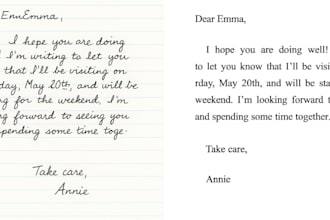 EnuEmma,
I hope you are doing
I'm writing to let you
that I'll be visiting on
day, May 20th, and will be
ng for the weekend. I'm
ng forward to seeing you
spending some time toge.
Take care,
Annie
Dear Emma,
I hope you are doing well!
to let you know that I'll be visi
rday, May 20th, and will be sta
weekend. I'm looking forward t
and spending some time together.
Take care,
Annie